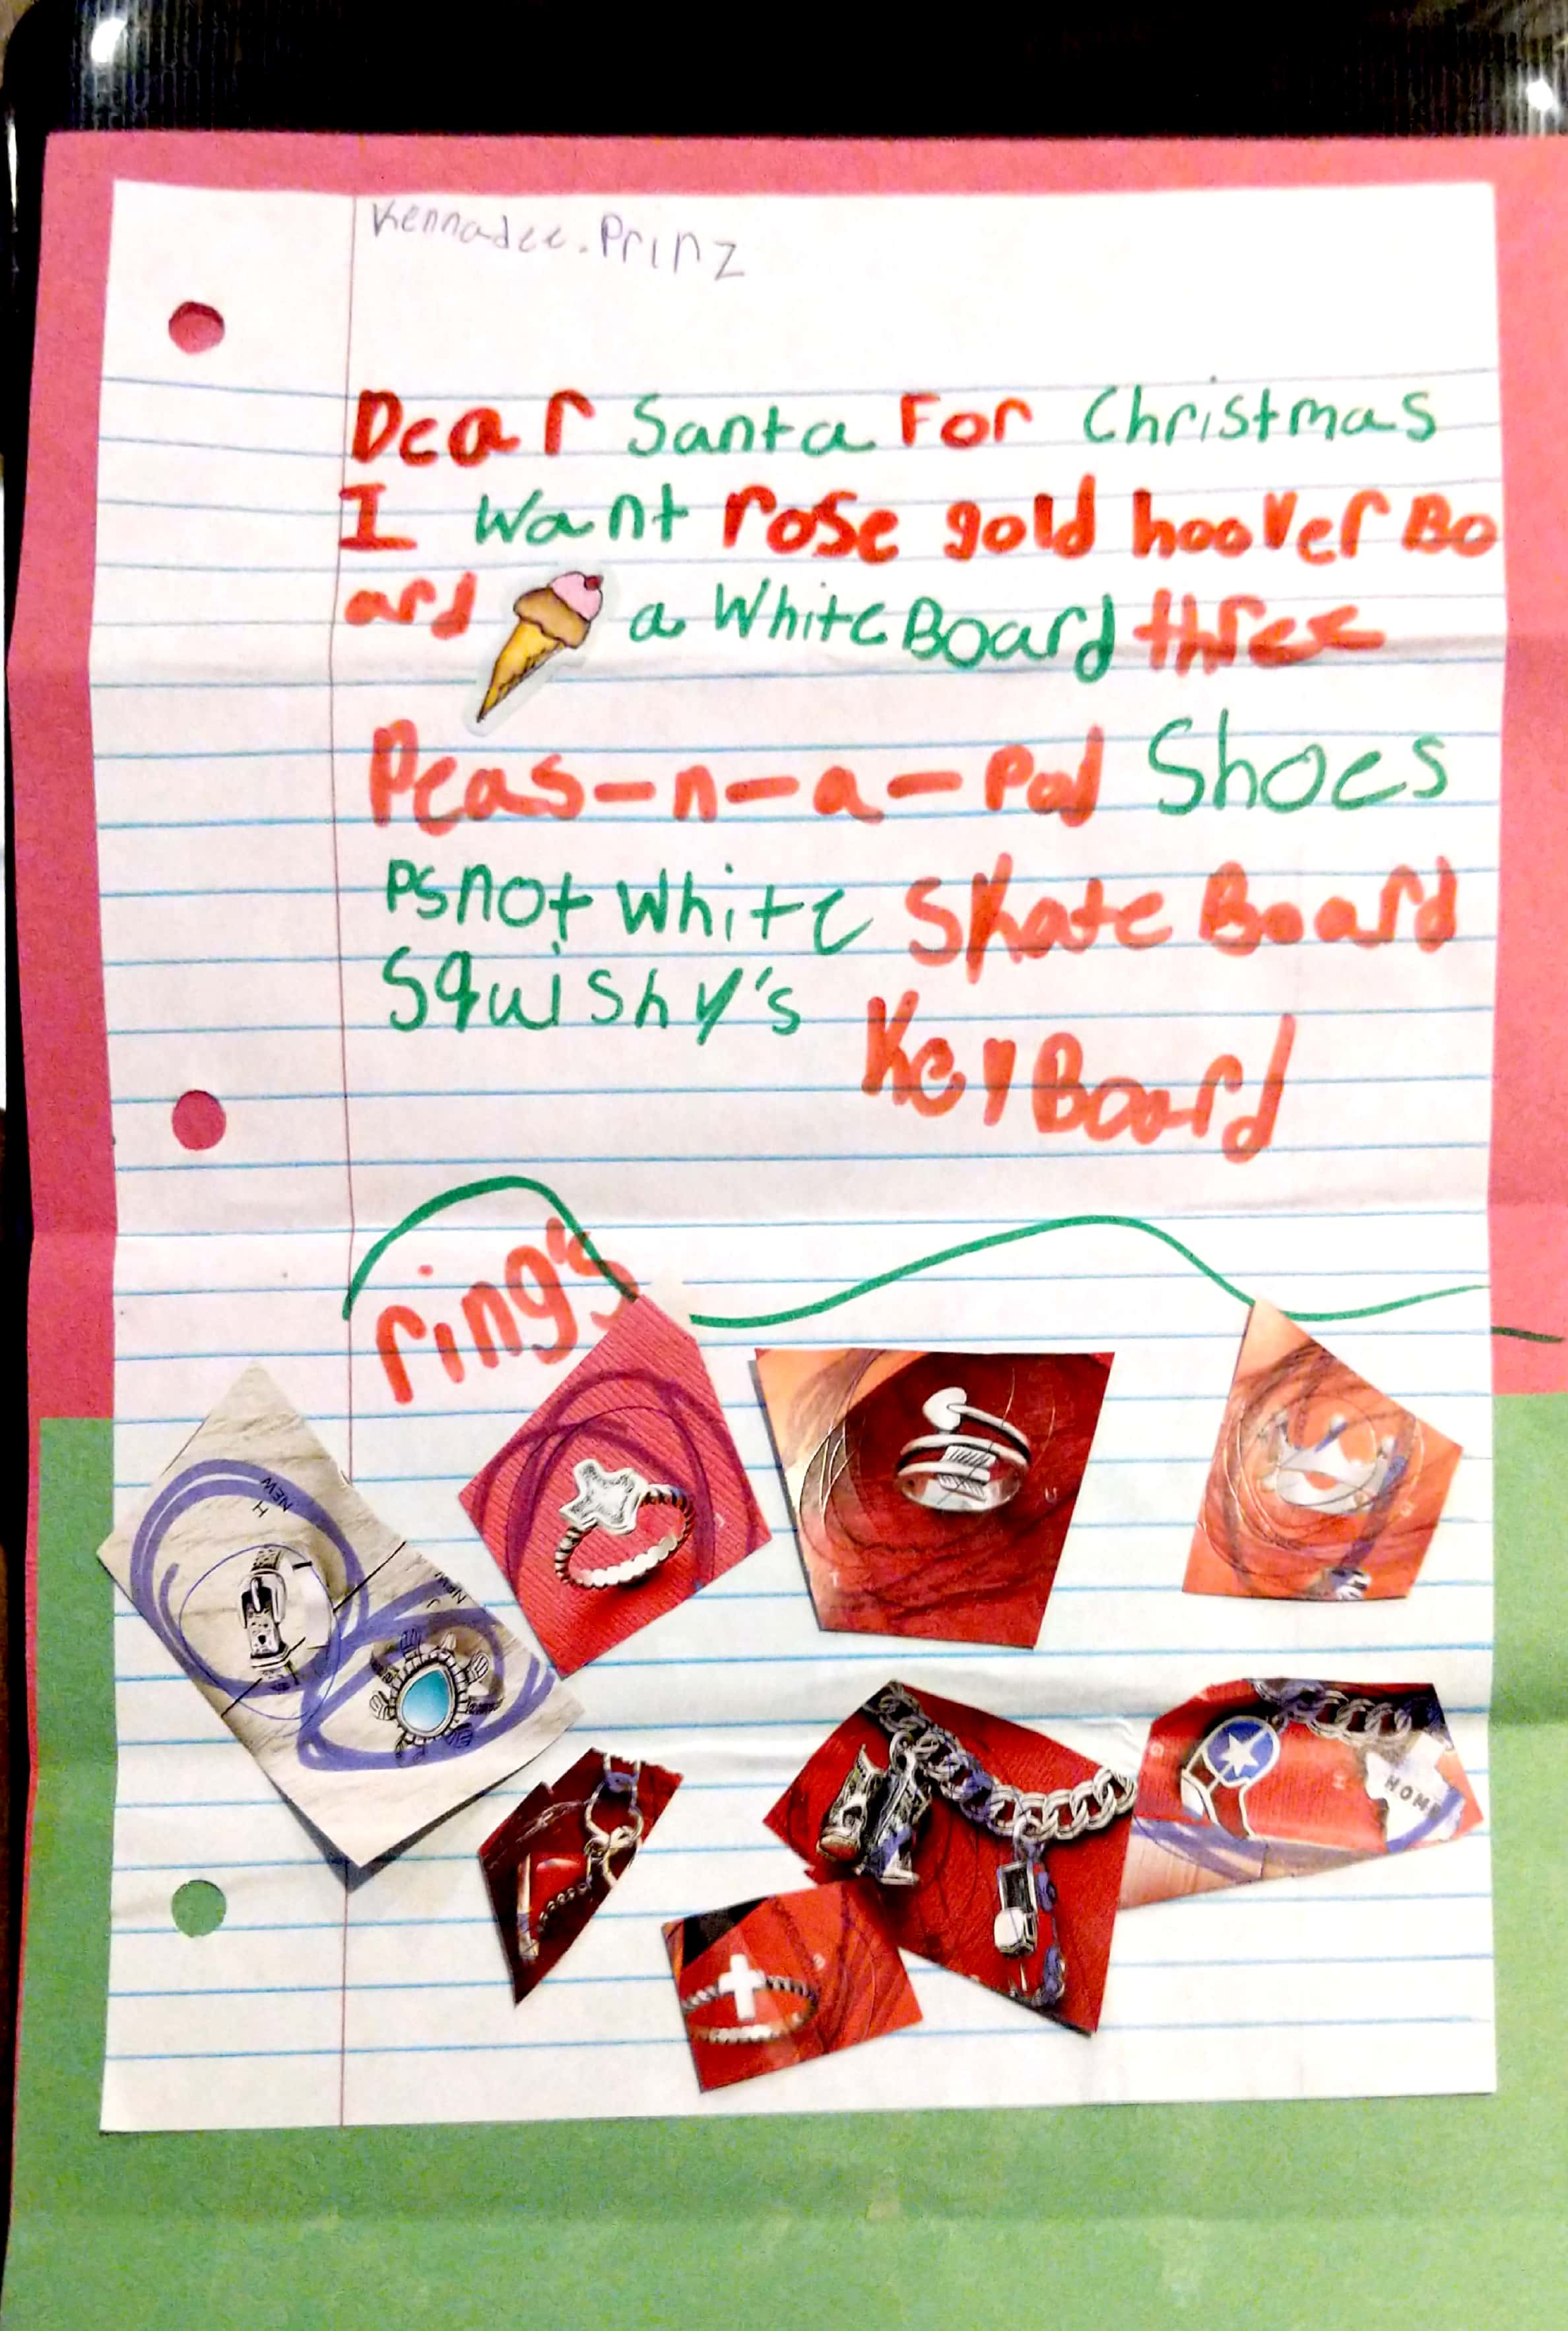 Kennadee.Prinz
Dear Santa For Christmas
I want rose gold hoover Bo
ard a White Board three
Peas-n-a-Pod Shoes
PS not white Skate Board
Squishy's
KeyBoard
ring's
NEW
H
NEW
J
HOME